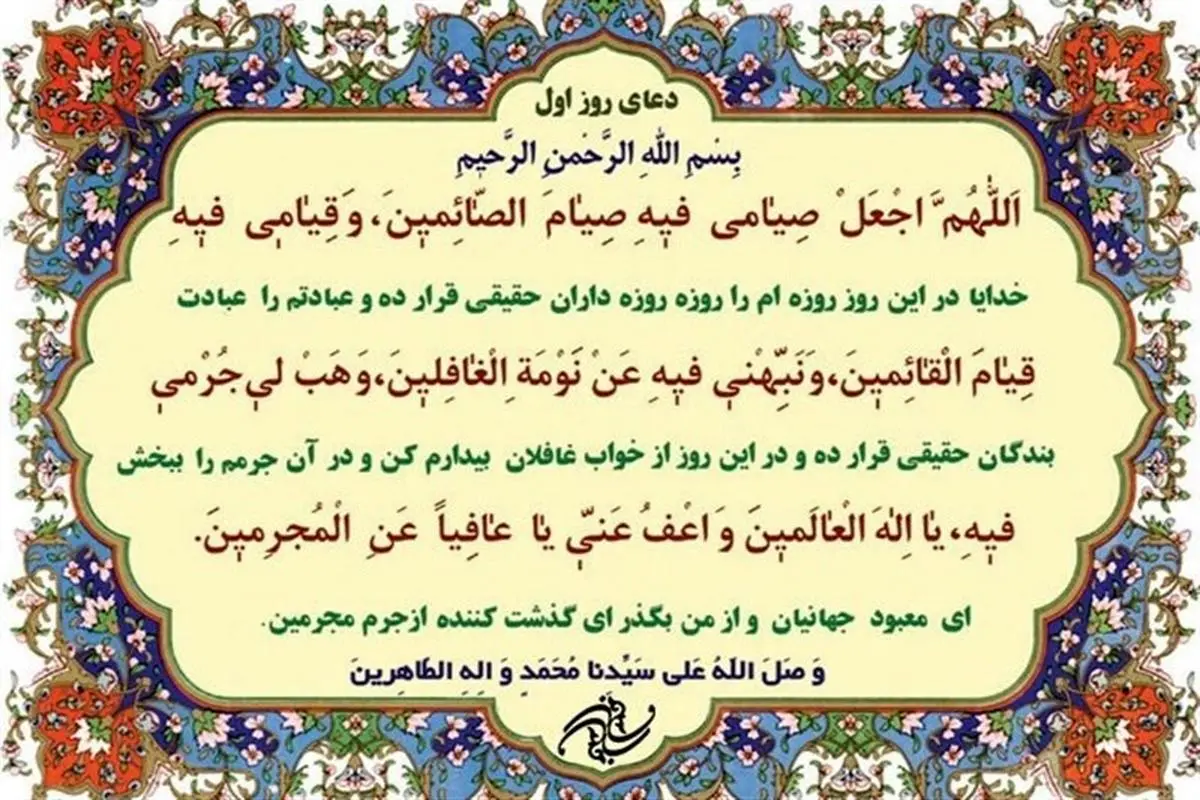 دعای روز اول
بِسْمِ اللهِ الرَّحْمنِ الرَّحیمِ
اَللّٰهُمَّ اجْعَلْ صِیٰامی فیٖهِ صِیٰامَ الصّٰائِمیٖنَ، وَقِیٰامیٖ فیٖهِ
خدایا در این روز روزه ام را روزه روزه داران حقیقی قرار ده و عبادتم را عبادت
قِیٰامَ الْقٰائِمیٖنَ، وَنَبِّهْنیٖ فیٖهِ عَنْ نَوْمَةِ الْغٰافِلیٖنَ، وَهَبْ لیٖ جُرْمیٖ
بندگان حقیقی قرار ده و در این روز از خواب غافلان بیدارم کن و در آن جرمم را ببخش
فیٖهِ، یٰا اِلٰهَ الْعٰالَمیٖنَ وَ اعْفُ عَنیّٖ یٰا عٰافِیاً عَنِ الْمُجرِمیٖنَ.
ای معبود جهانیان و از من بگذر ای گذشت کننده ازجرم مجرمین.
وَ صَلَ اللهُ عَلی سَیِّدنا مُحَمَدٍ وَ الِهِ الطاهِرینَ